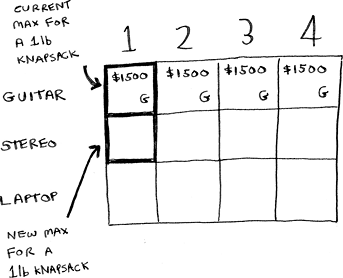 CURRENT
MAX FOR
A 1lb
KNAPSACK
1 2 3 4
GUITAR
$1500 $1500 $1500 $1500
G G G G
STEREO
LAPTOP
NEW MAX
FOR A
1lb KNAPSACK